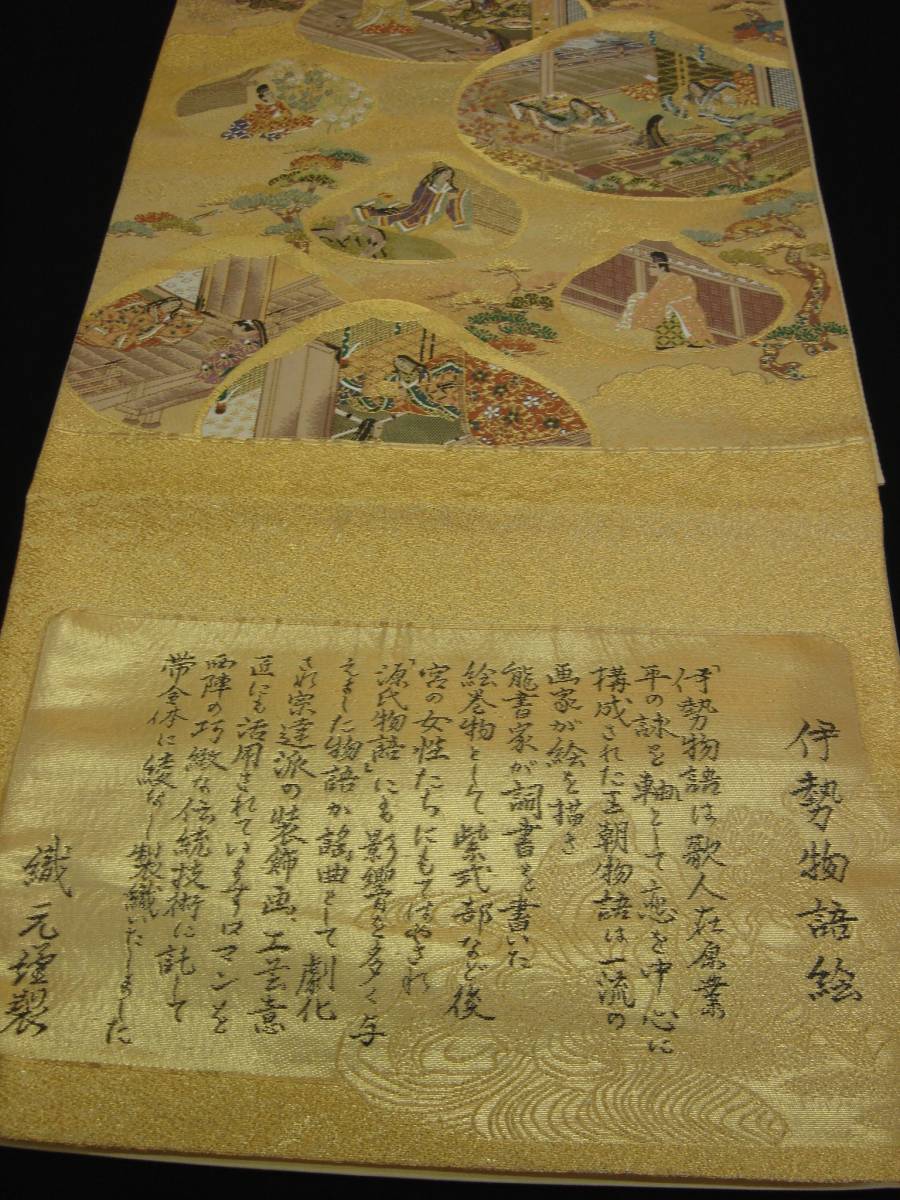 伊勢物語絵
「伊勢物語は歌人在原業
平の詠を軸として恋を中心に
構成された王朝物語は一流の
画家が絵を描き
能書家が詞書を書いた
絵巻物として紫式部など後
宮の女性たちにもてはやされ
「源氏物語」にも影響を多く与
えました物語が謡曲として劇化
され宗達派の装飾画、工芸意
匠にも活用されていますロマンを
西陣の巧緻な伝統技術に託して
帯全体に綾なし製織いたしました
織元謹製